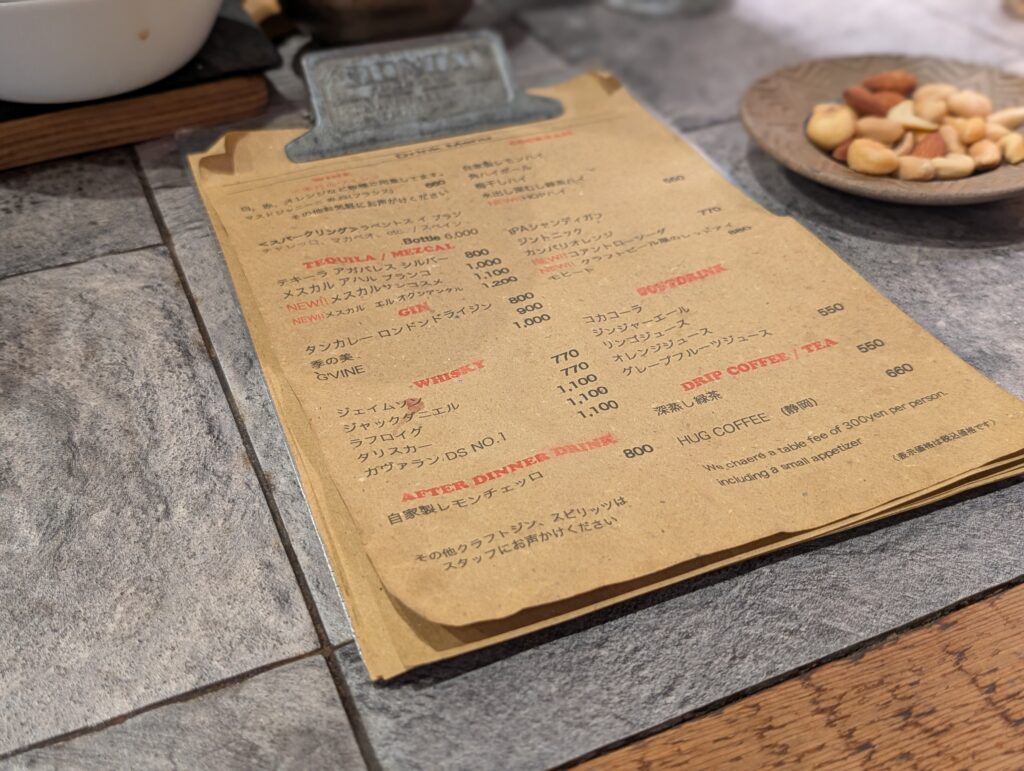 Drink Menu
WINE
白、赤、オレンジなど数種ご用意してます。
その他お気軽にお声がけください
880
<スパークリング>
Bottle 6,000
TEQUILA / MEZCAL
テキーラ アガバレス シルバー 800
メスカル アハル ブランコ 1,000
NEW!!メスカルサンコスメ 1,100
NEW!!メスカル エルオクシデンタル 1,200
GIN
タンカレー ロンドンドライジン 800
季の美 900
G'VINE 1,000
WHISKY
ジェイムソン 770
ジャックダニエル 770
ラフロイグ 1,100
タリスカー 1,100
カヴァラン DS NO.1 1,100
AFTER DINNER DRINK
自家製レモンチェッロ 800
その他クラフトジン、スピリッツは
スタッフにお声かけください
COCKTAIL
自家製レモンハイ
角ハイボール
梅干しハイ
水出し深むし緑茶ハイ
NEW!!HOPハイ
660
IPAシャンディガフ 770
ジントニック
カンパリオレンジ
NEW!!コアントローソーダ
NEW!!クラフトビール屋のレッドアイ
モヒート 880
SOFTDRINK
コカコーラ
ジンジャーエール
リンゴジュース
オレンジジュース
グレープフルーツジュース
550
DRIP COFFEE / TEA
深蒸し緑茶 550
HUG COFFEE (静岡) 660
We chaerė a table fee of 300yen per person.
including a small appetizer
(表示価格は税込価格です)